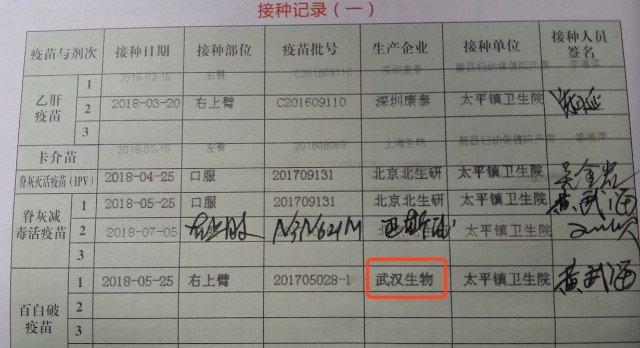 接种记录(一)
疫苗与剂次 接种日期 接种部位 疫苗批号 生产企业 接种单位 接种人员签名
乙肝疫苗
1 2018-02-16 右臂 C201609110 深圳康泰
2 2018-03-20 右上臂 C201609110 深圳康泰 太平镇卫生院
3
卡介苗 2018-02-16 左臂 上海生物
脊灰灭活疫苗(IPV) 2018-04-25 口服 201709131 北京北生研 太平镇卫生院
脊灰减毒活疫苗
1 2018-05-25 口服 201709131 北京北生研 太平镇卫生院 黄武通
2 2018-07-05 右上臂 N3N621M 太平镇卫生院
3
百白破疫苗
1 2018-05-25 右上臂 201705028-1 武汉生物 太平镇卫生院 黄武通
2
3